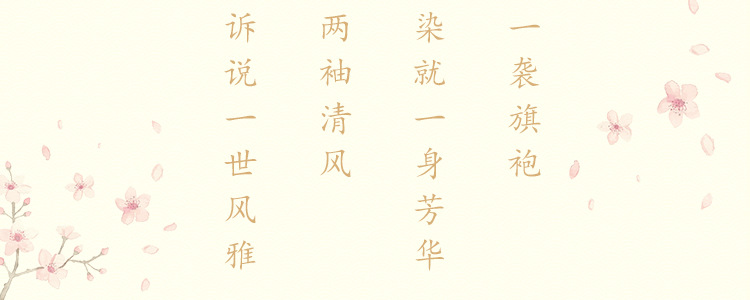 一袭旗袍
染就一身芳华
两袖清风
诉说一世风雅